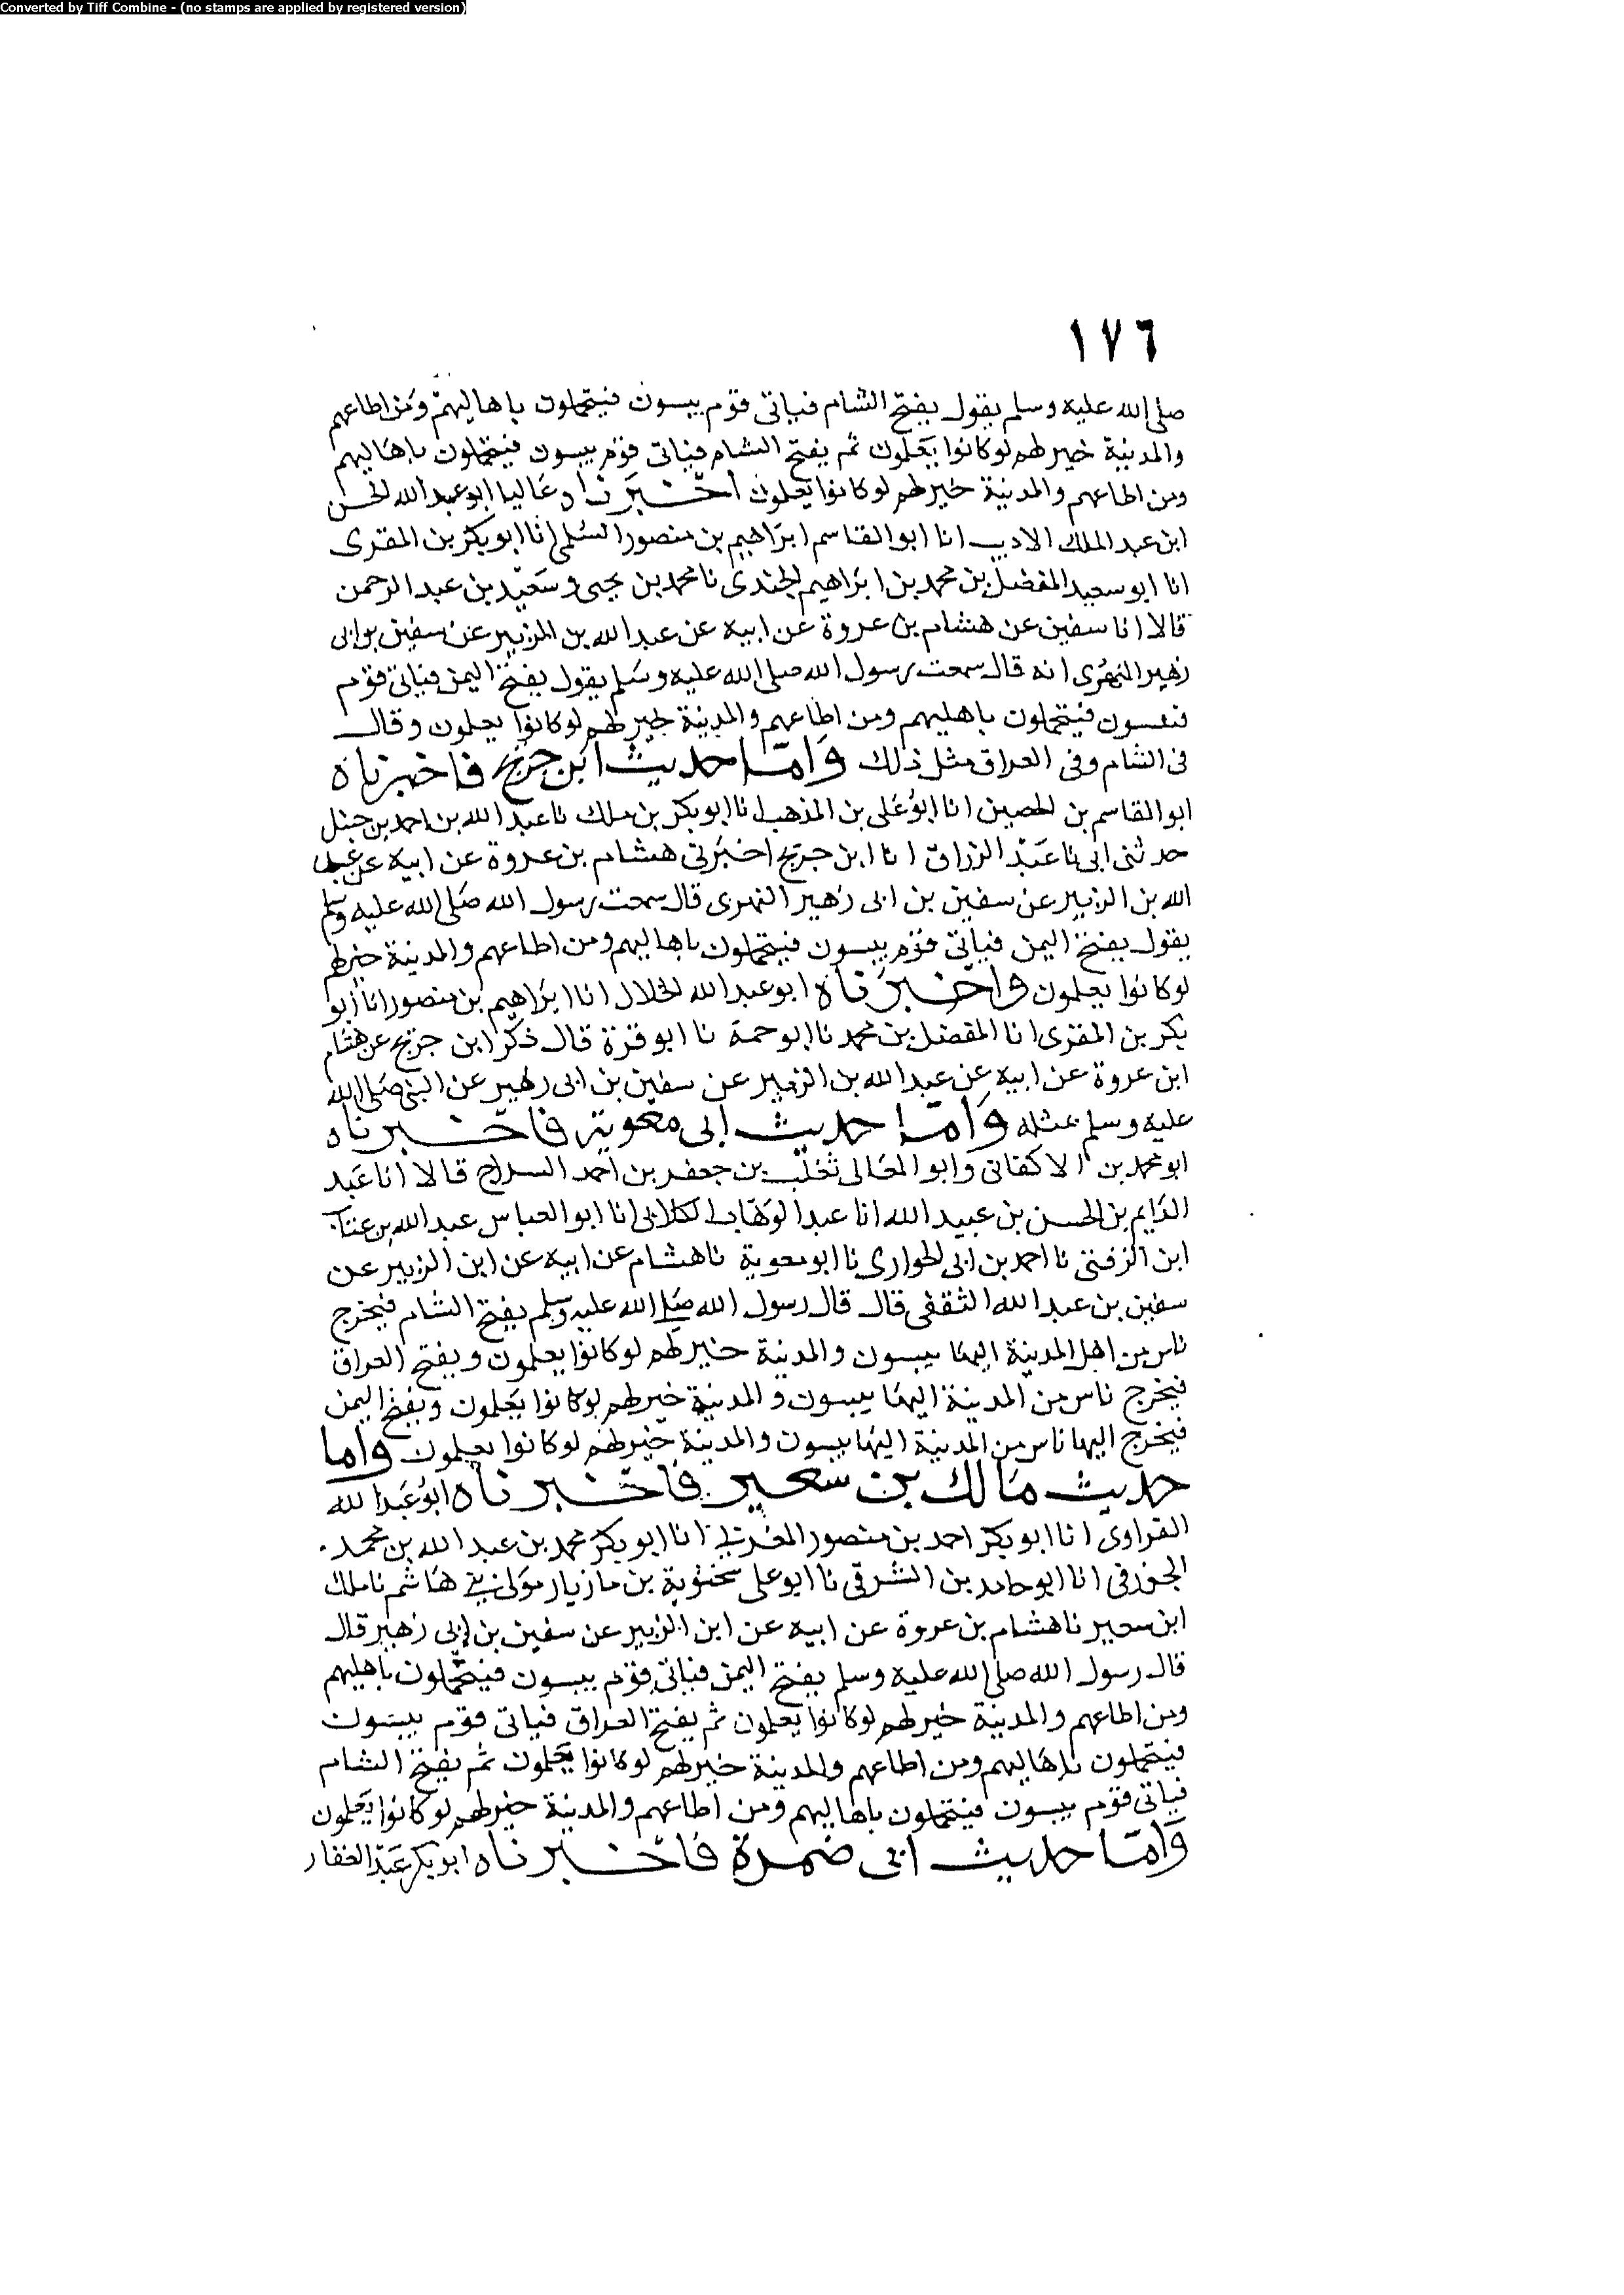 Converted by Tiff Combine - (no stamps are applied by registered version)
١٧٦
صلى الله عليه وسلم يقول يفتح الشام فياتى قوم يبسون فيتحملون باهاليهم ومن اطاعهم
والمدينة خير لهم لو كانوا يعلمون ثم يفتح الشام فياتى قوم يبسون فيتحملون باهاليهم
ومن اطاعهم والمدينة خير لهم لو كانوا يعلمون اخبرناه عاليا ابو عبد الله الحسن
ابن عبد الملك الاديب انا ابو القاسم ابراهيم بن منصور السلمى انا ابو بكر بن المقرى
انا ابو سعيد المفضل بن محمد بن ابراهيم الجندى نا محمد بن يحيى وسعيد بن عبد الرحمن
قالا انا سفين عن هشام بن عروة عن ابيه عن عبد الله بن الزبير عن سفين بن ابى
زهير النهرى انه قال سمعت رسول الله صلى الله عليه وسلم يقول يفتح اليمن فياتى قوم
فيتحملون باهليهم ومن اطاعهم والمدينة خير لهم لو كانوا يعلمون وقال
فى الشام وفى العراق مثل ذلك واما حديث ابن جريج فاخبرناه
ابو القاسم بن الحصين انا ابو على بن المذهب انا ابو بكر بن ملك نا عبد الله بن احمد بن حنبل
حدثنى ابى نا عبد الرزاق انا ابن جريج اخبرنى هشام بن عروة عن ابيه عن عبد
الله بن الزبير عن سفين بن ابى زهير النهرى قال سمعت رسول الله صلى الله عليه وسلم
يقول يفتح اليمن فياتى قوم يبسون فيتحملون باهاليهم ومن اطاعهم والمدينة خير لهم
لو كانوا يعلمون واخبرناه ابو عبد الله الخلال انا ابراهيم بن منصور انا ابو
بكر بن المقرى انا المفضل بن محمد نا ابو حمة نا ابو قرة قال ذكر ابن جريج عن هشام
ابن عروة عن ابيه عن عبد الله بن الزبير عن سفين بن ابى زهير عن النبى صلى الله
عليه وسلم بمثله واما حديث ابى معوية فاخبرناه
ابو محمد بن الاكفانى وابو المعالى ثعلب بن جعفر بن احمد السراج قالا انا عبد
الدايم بن الحسن بن عبيد الله انا عبد الوهاب الكلابى انا ابو العباس عبد الله بن عتاب
ابن الزفتى نا احمد بن ابى الحوارى نا ابو معوية نا هشام عن ابيه عن ابن الزبير عن
سفين بن عبد الله الثقفى قال قال رسول الله صلى الله عليه وسلم يفتح الشام فيخرج
ناس من اهل المدينة اليها يبسون والمدينة خير لهم لو كانوا يعلمون ويفتح العراق
فيخرج ناس من المدينة اليها يبسون والمدينة خير لهم لو كانوا يعلمون ويفتح اليمن
فيخرج اليها ناس من المدينة اليها يبسون والمدينة خير لهم لو كانوا يعلمون واما
حديث مالك بن سعير فاخبرناه ابو عبد الله
الفراوى انا ابو بكر احمد بن منصور المغربى انا ابو بكر محمد بن عبد الله بن محمد
الجوزقى انا ابو حامد بن الشرقى نا ابو على سختوية بن مازيار مولى بنى هاشم نا ملك
ابن سعير نا هشام بن عروة عن ابيه عن ابن الزبير عن سفين بن ابى زهير قال
قال رسول الله صلى الله عليه وسلم يفتح اليمن فياتى قوم يبسون فيتحملون باهليهم
ومن اطاعهم والمدينة خير لهم لو كانوا يعلمون ثم يفتح العراق فياتى قوم يبسون
فيتحملون باهاليهم ومن اطاعهم والمدينة خير لهم لو كانوا يعلمون ثم يفتح الشام
فياتى قوم يبسون فيتحملون باهاليهم ومن اطاعهم والمدينة خير لهم لو كانوا يعلمون
واما حديث ابى ضمرة فاخبرناه ابو بكر عبد الغفار